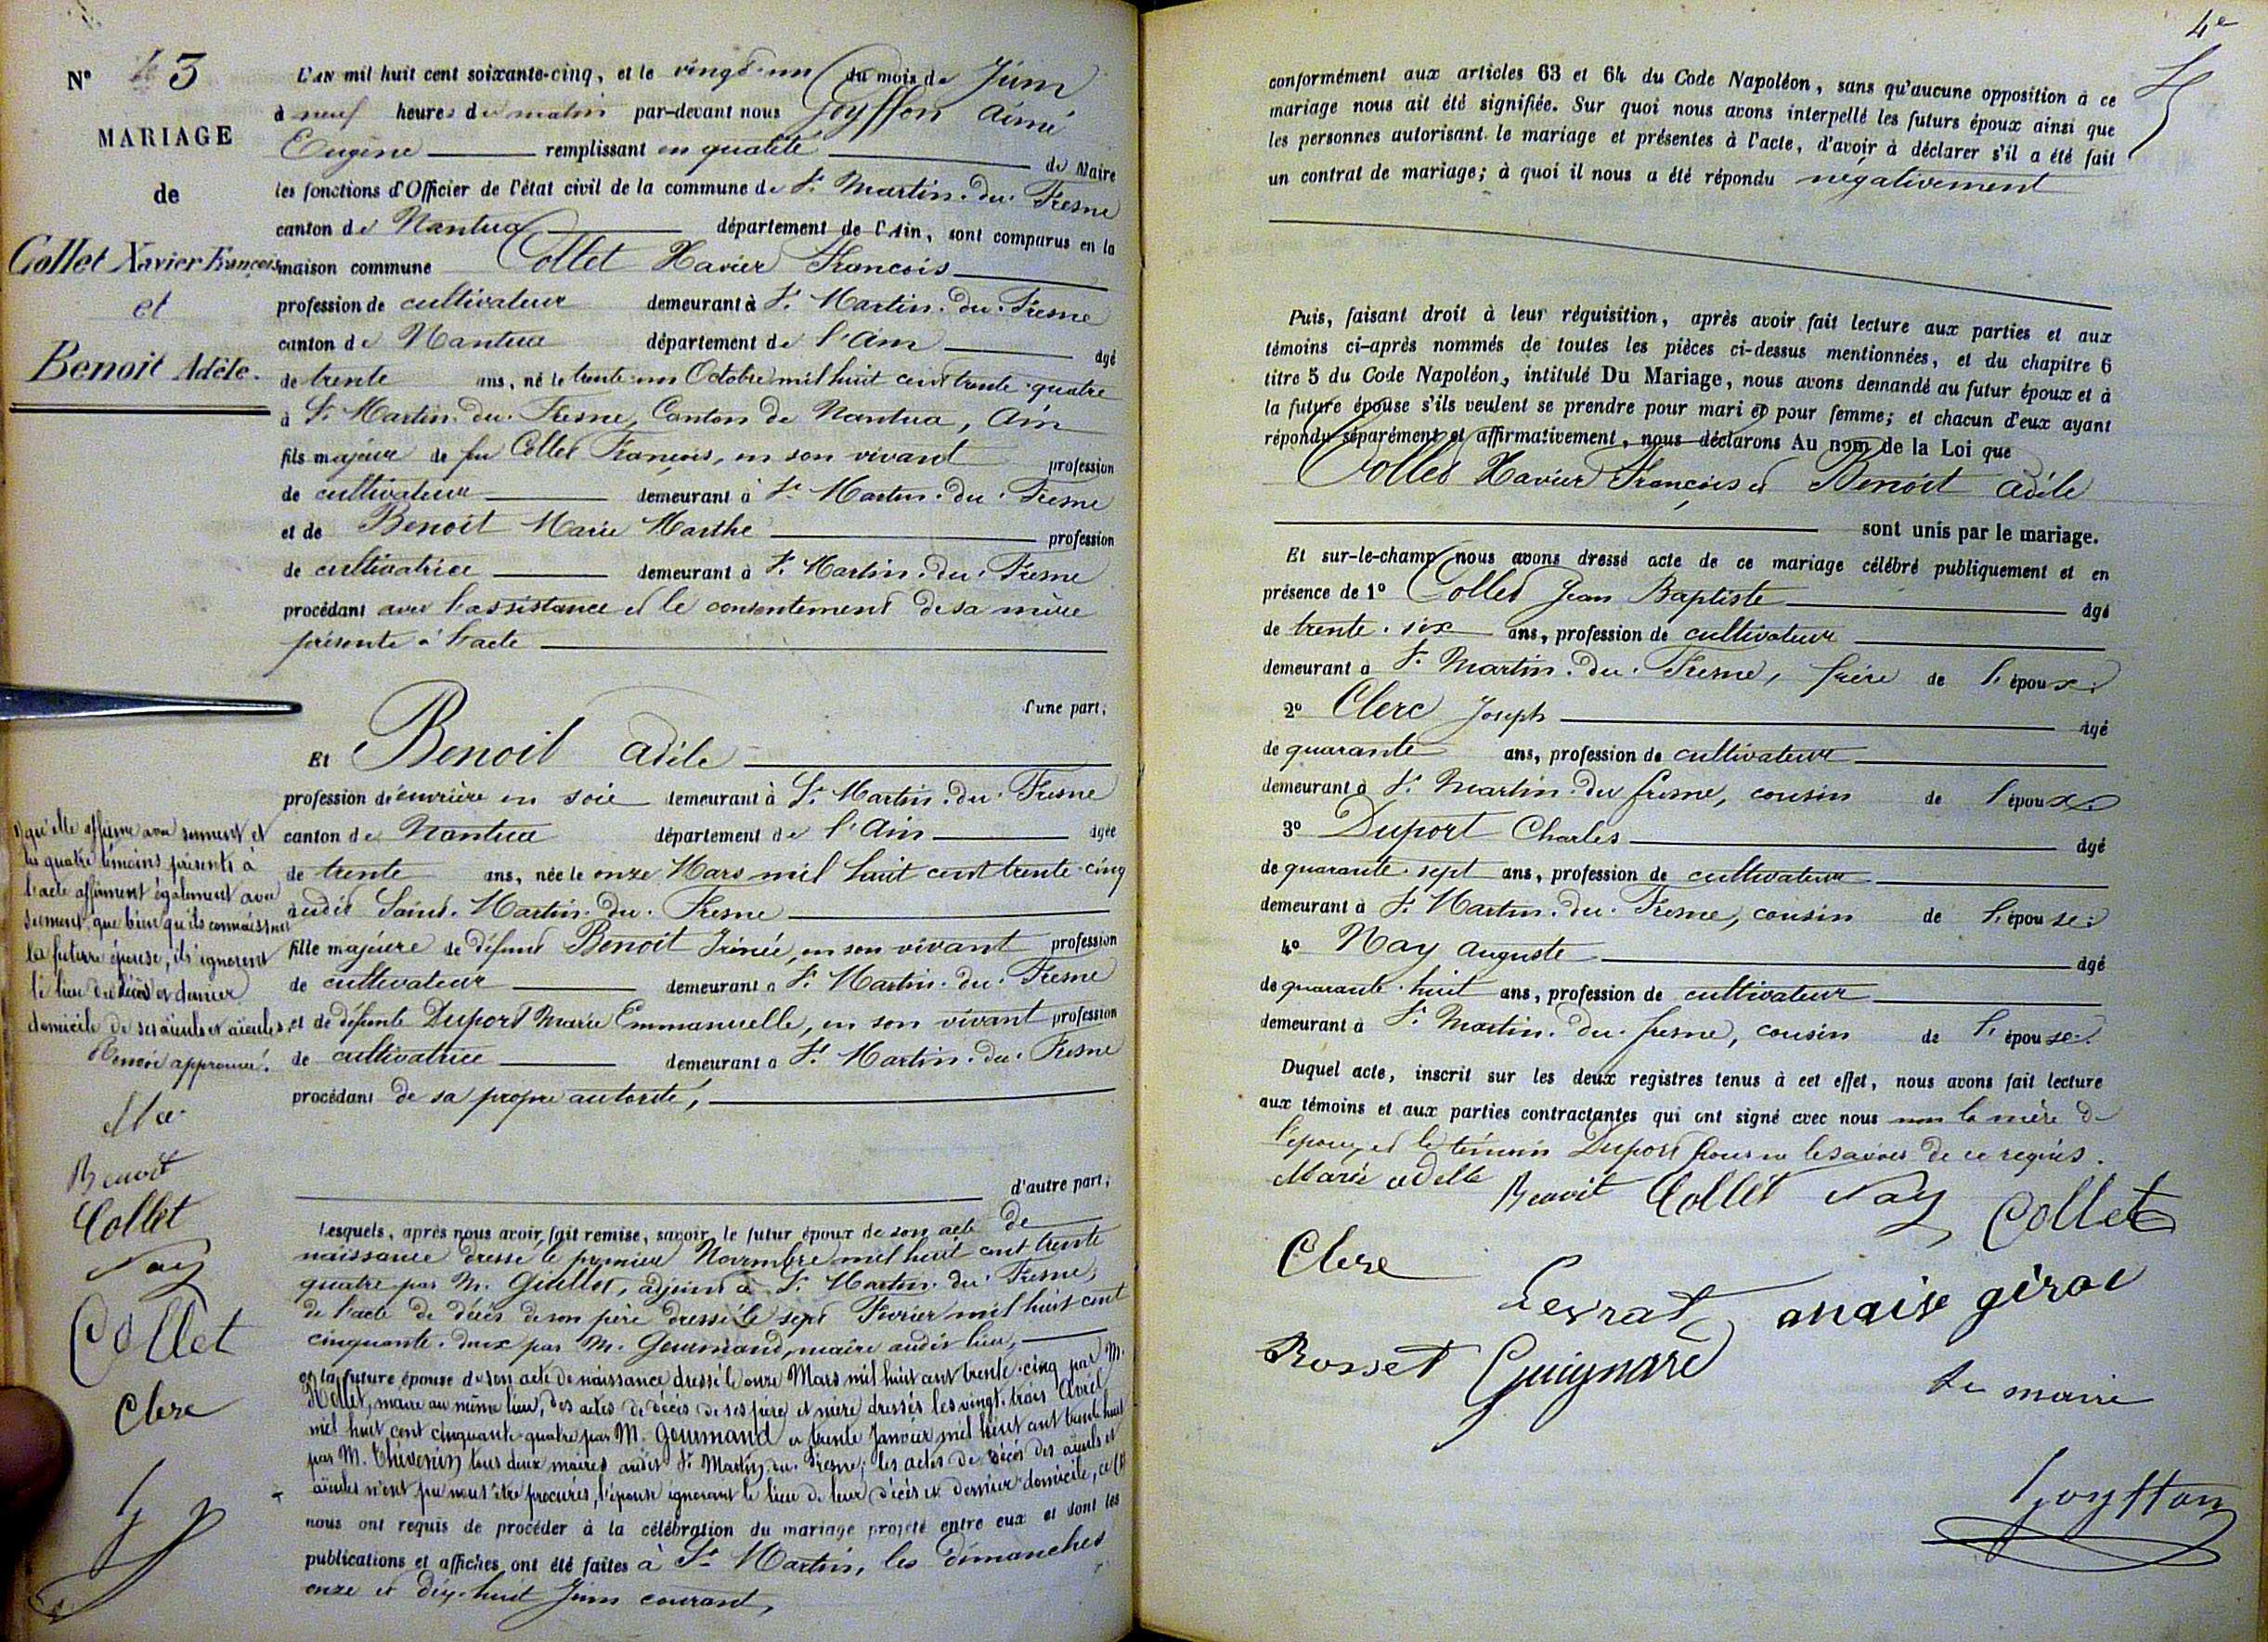 N° 3
MARIAGE
de
Collet Xavier François
et
Benoit Adèle.
L'AN mil huit cent soixante-cinq, et le vingt-un du mois de Juin
à neuf heures du matin par-devant nous Goyffon Aimé
Eugène remplissant en qualité de Maire
les fonctions d'Officier de l'état civil de la commune de St Martin-du-Fresne
canton de Nantua département de l'Ain, sont comparus en la
maison commune Collet Xavier Francois
profession de cultivateur demeurant à St Martin-du-Fresne
canton de Nantua département de l'Ain âgé
de trente ans, né le trente un Octobre mil huit cent trente-quatre
à St Martin-du-Fresne, Canton de Nantua, Ain
fils majeur de feu Collet François, en son vivant profession
de cultivateur demeurant à St Martin-du-Fresne
et de Benoit Marie Marthe profession
de cultivatrice demeurant à St Martin-du-Fresne
procédant avec l'assistance et le consentement de sa mère
présente à l'acte
d'une part,
Et Benoit Adèle
profession d'ouvrière en soie demeurant à St Martin-du-Fresne
canton de Nantua département de l'Ain âgée
de trente ans, née le onze Mars mil huit cent trente-cinq
audit Saint-Martin-du-Fresne
fille majeure de défunt Benoit Irénée, en son vivant profession
de cultivateur demeurant à St Martin-du-Fresne
et de défunte Duport Marie Emmanuelle, en son vivant profession
de cultivatrice demeurant à St Martin-du-Fresne
procédant de sa propre autorité,
d'autre part,
Lesquels, après nous avoir fait remise, savoir, le futur époux de son acte de
naissance dressé le premier Novembre mil huit cent trente
quatre par M. Guillot, adjoint à St Martin-du-Fresne,
de l'acte de décès de son père dressé le sept Février mil huit cent
cinquante-deux par M. Gourmand, maire audit lieu,
et la future épouse de son acte de naissance dressé le onze Mars mil huit cent trente-cinq par M.
maire au même lieu, des actes de décès de ses père et mère dressés les vingt-trois Avril
mil huit cent cinquante-quatre par M. Gourmand et trente Janvier mil huit cent trente huit
par M. Thévenin tous deux maires audit St Martin-du-Fresne; les actes de décès des aïeuls et
aïeules n'ont pu nous être procurés, l'épouse ignorant le lieu de leur décès et dernier domicile, ce (1)
nous ont requis de procéder à la célébration du mariage projeté entre eux et dont les
publications et affiches ont été faites à St Martin, les dimanches
onze et dix-huit Juin courant,
(1) qu'elle affirme avec serment et
les quatre témoins présents à
l'acte affirment également avec
serment que bien qu'ils connaissent
la future épouse, ils ignorent
le lieu du décès et dernier
domicile de ses aïeuls et aïeules.
Renvoi approuvé.
Benoit
Collet
Nay
Collet
Clerc
4e
conformément aux articles 63 et 64 du Code Napoléon, sans qu'aucune opposition à ce
mariage nous ait été signifiée. Sur quoi nous avons interpellé les futurs époux ainsi que
les personnes autorisant le mariage et présentes à l'acte, d'avoir à déclarer s'il a été fait
un contrat de mariage; à quoi il nous a été répondu négativement
Puis, faisant droit à leur réquisition, après avoir fait lecture aux parties et aux
témoins ci-après nommés de toutes les pièces ci-dessus mentionnées, et du chapitre 6
titre 5 du Code Napoléon, intitulé Du Mariage, nous avons demandé au futur époux et à
la future épouse s'ils veulent se prendre pour mari et pour femme; et chacun d'eux ayant
répondu séparément et affirmativement, nous déclarons Au nom de la Loi que
Collet Xavier François et Benoit Adèle
sont unis par le mariage.
Et sur-le-champ nous avons dressé acte de ce mariage célébré publiquement et en
présence de 1° Collet Jean Baptiste âgé
de trente-six ans, profession de cultivateur
demeurant à St Martin-du-Fresne, frère de l'époux.
2° Clerc Joseph âgé
de quarante ans, profession de cultivateur
demeurant à St Martin-du-fresne, cousin de l'époux
3° Duport Charles âgé
de quarante-sept ans, profession de cultivateur
demeurant à St Martin-du-Fresne, cousin de l'épouse.
4° Nay Auguste âgé
de quarante-huit ans, profession de cultivateur
demeurant à St Martin-du-fresne, cousin de l'épouse.
Duquel acte, inscrit sur les deux registres tenus à cet effet, nous avons fait lecture
aux témoins et aux parties contractantes qui ont signé avec nous non la mère de
l'époux et le témoin Duport pour ne le savoir de ce requis.
Marie adelle Benoit Collet Nay Collet
Clerc
Levrat anaise girod
Rosset Guignard
Le maire
Goyffon